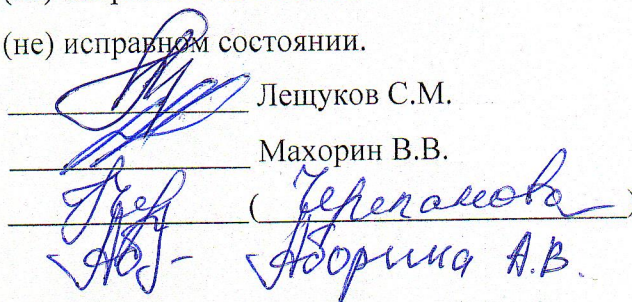 (не) исправном состоянии.
Лещуков С.М.
Махорин В.В.
(Черепанова)
Аборина А.В.